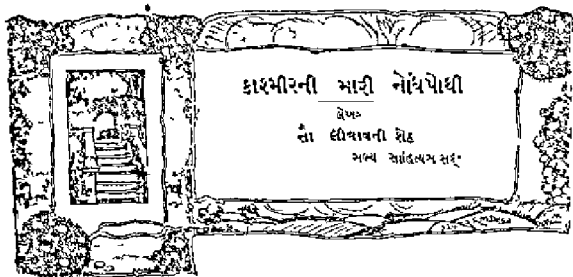 કાશ્મીરની મારી નોંધપોથી
લેખક
સૌ લીલાવતી શેઠ
સભ્ય સાહિત્યસંસદ